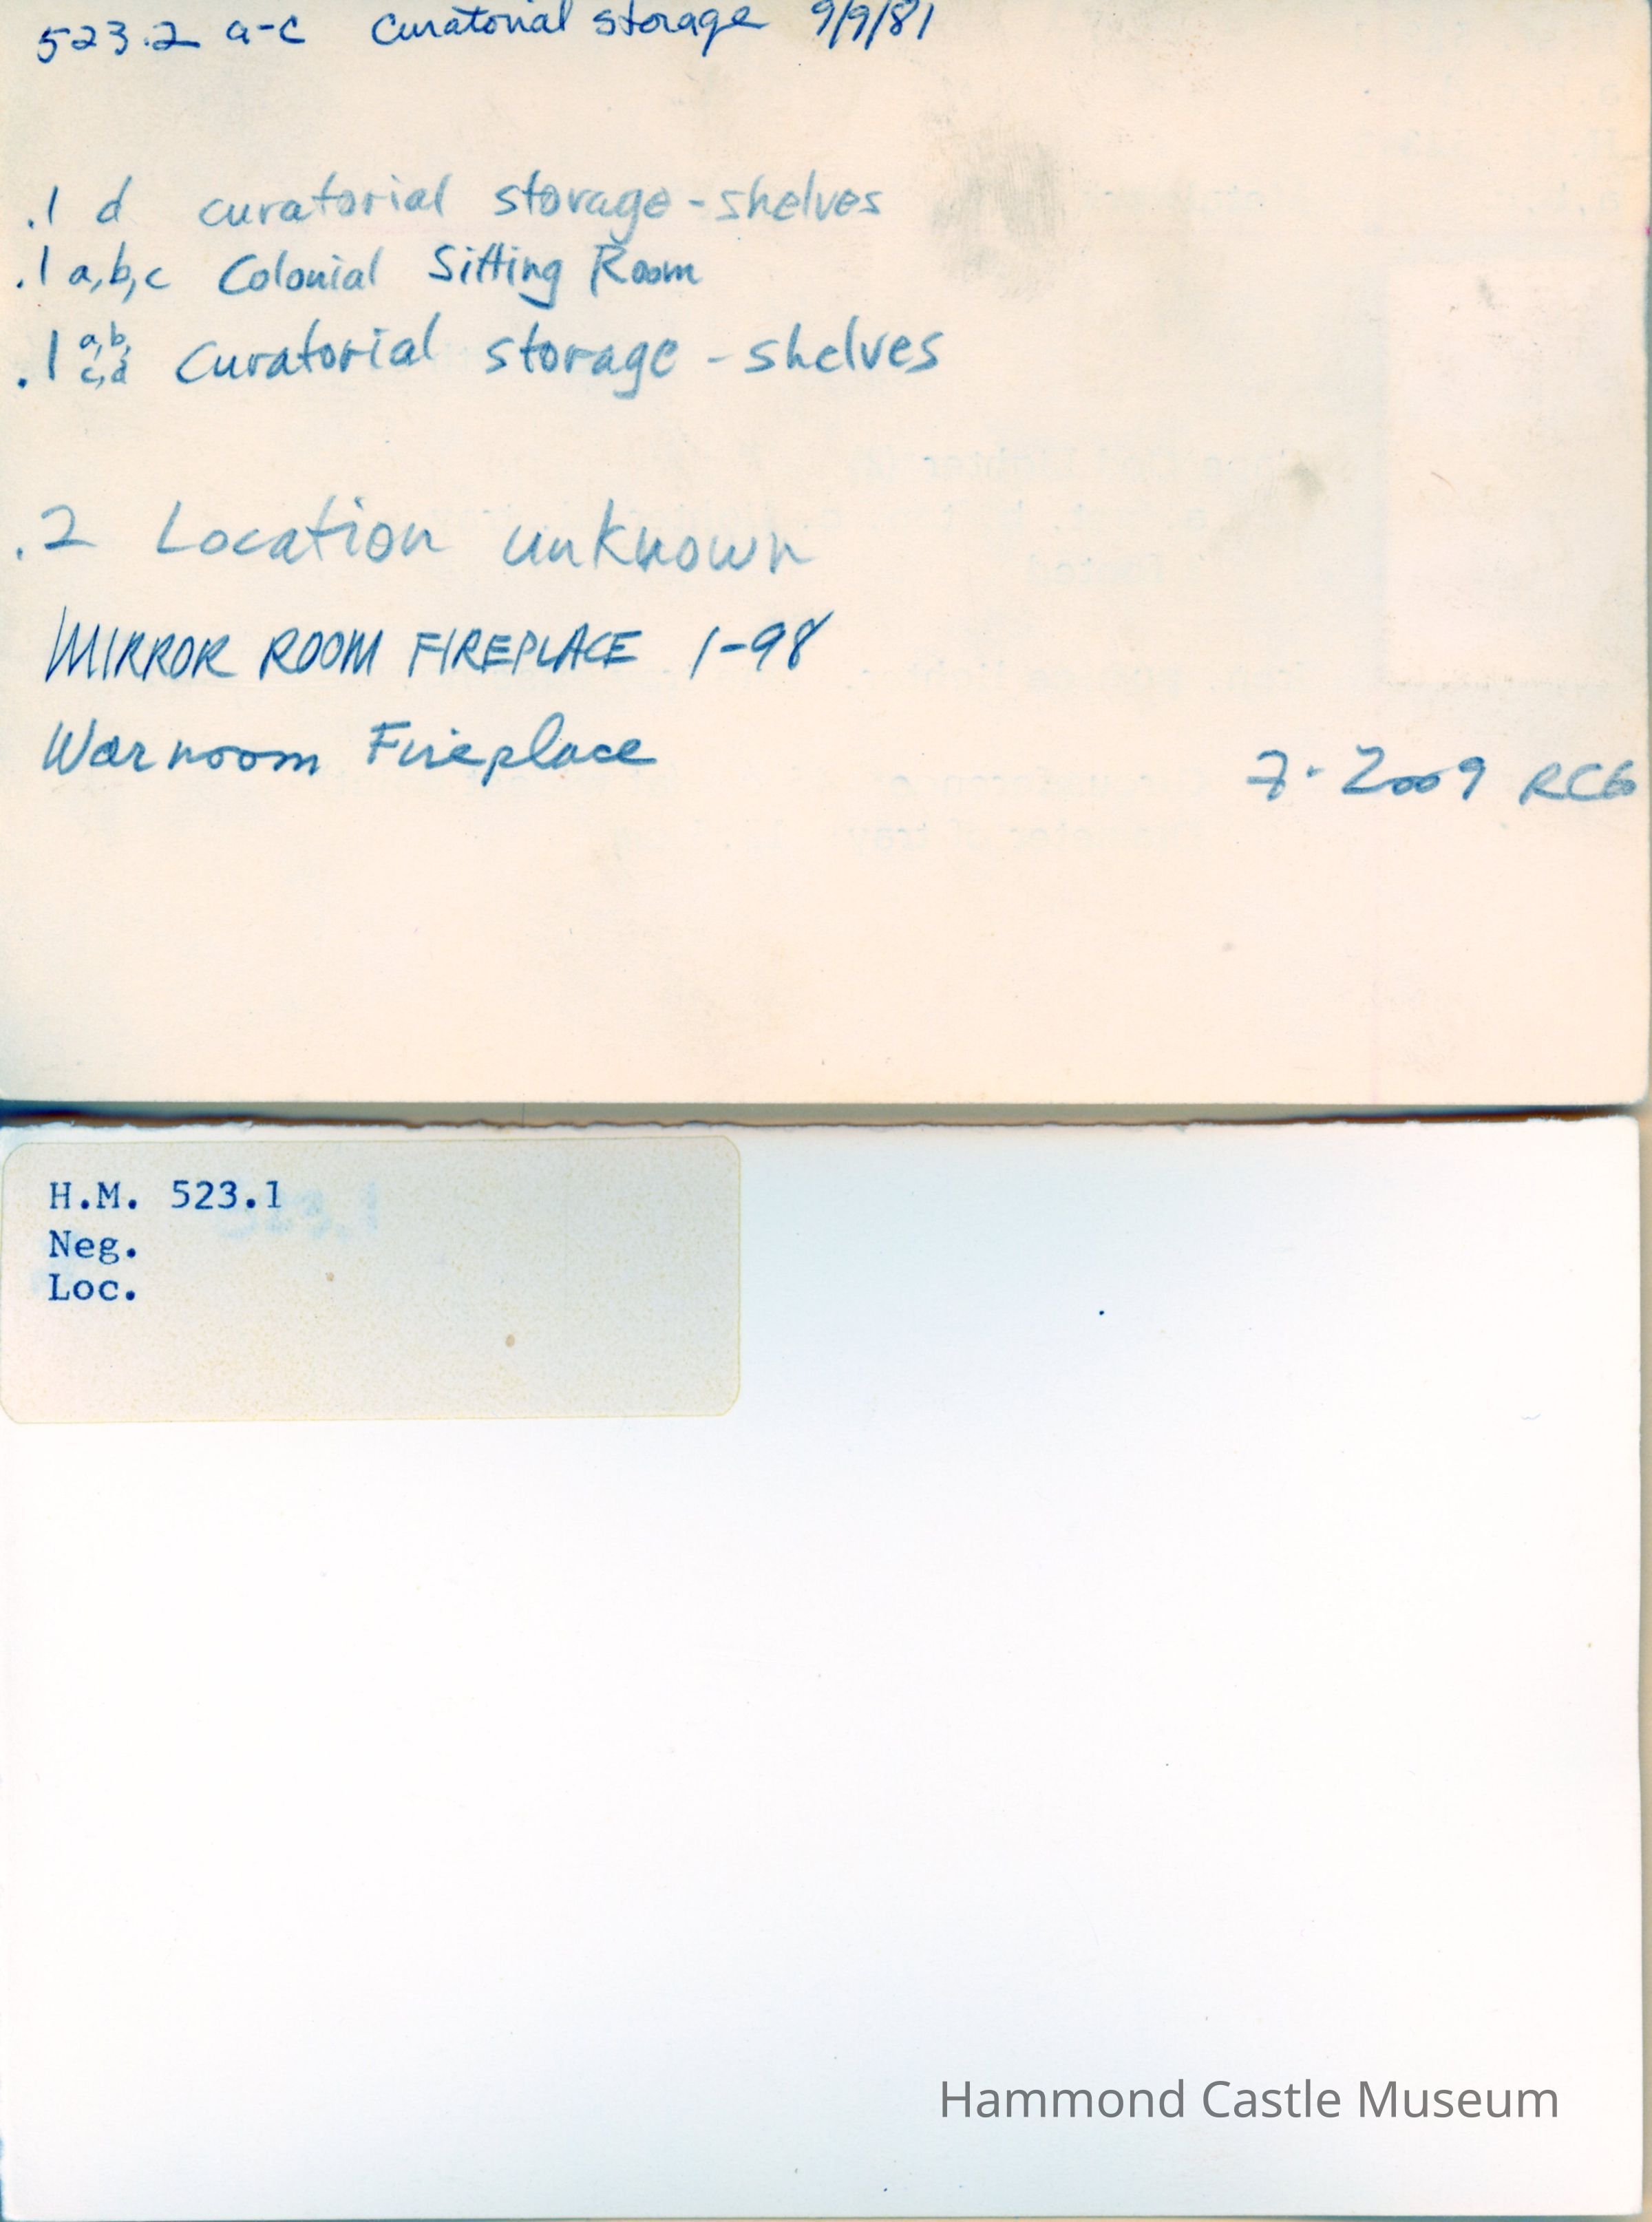 523.2 a-c Curatorial storage 9/9/81
.1 d curatorial storage - shelves
.1 a,b,c Colonial Sitting Room
.1 a,b, c,d Curatorial storage - shelves
.2 Location unknown
MIRROR ROOM FIREPLACE 1-98
Warroom Fireplace 7. 2009 RCG
H.M. 523.1
Neg.
Loc.
Hammond Castle Museum